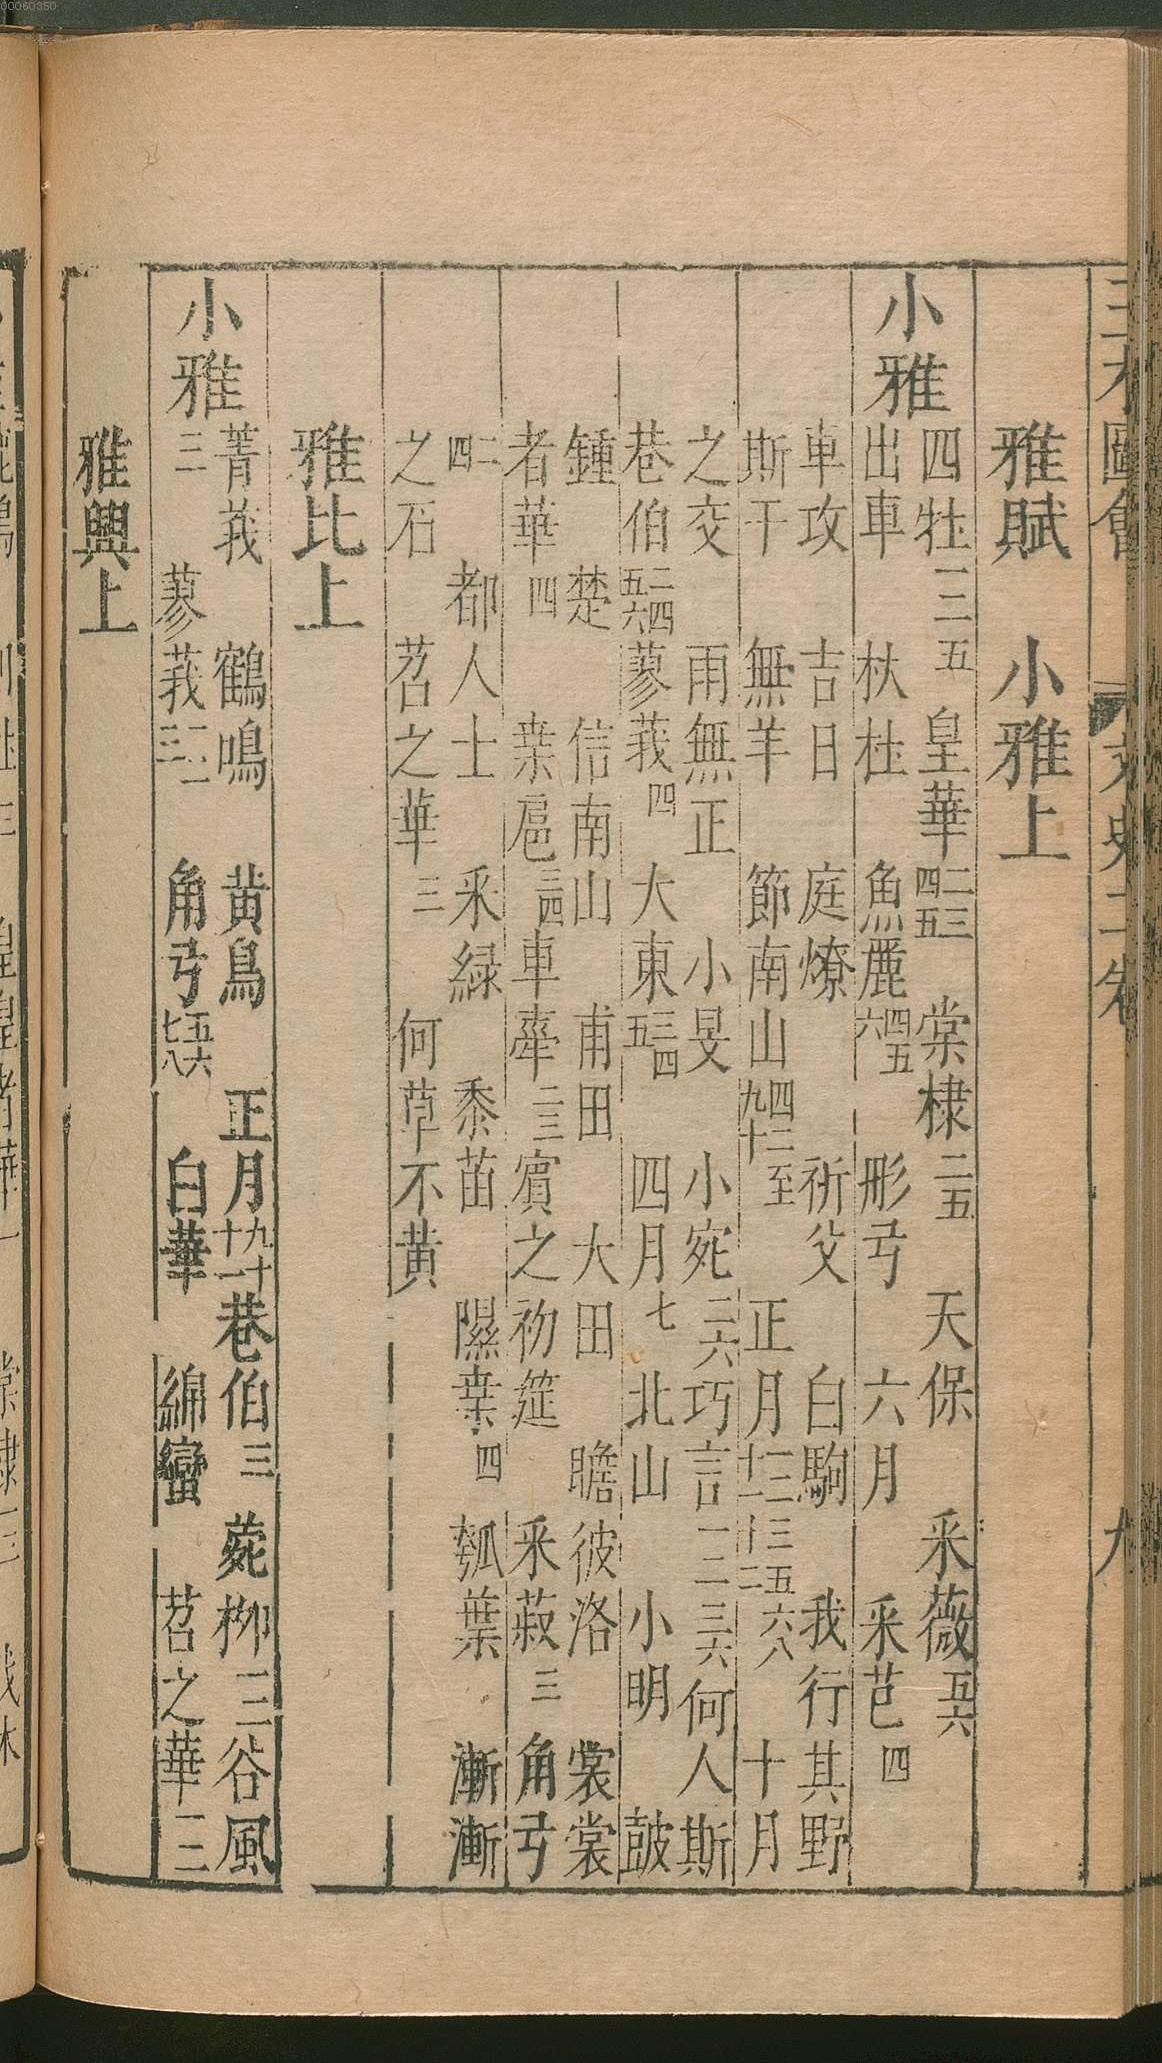 三才圖會 文史二卷 九
雅賦 小雅上
小雅
四牡一二五 皇華二三四五 棠棣二五 天保 采薇五六
出車 杕杜 魚麗四五六 彤弓 六月 采芑四
車攻 吉日 庭燎 祈父 白駒 我行其野
斯干 無羊 節南山四二至九十 正月一三十一三五十二六八 十月
之交 雨無正 小旻 小宛二六 巧言一二三六 何人斯
巷伯二四五六 蓼莪四 大東三四五 四月七 北山 小明 鼓
鍾 楚 信南山 甫田 大田 瞻彼洛 裳裳
者華四 桑扈三四 車舝二三 賓之初筵 采菽三 角弓
二四 都人士 采緑 黍苗 隰桑四 瓠葉 漸漸
之石 苕之華三 何草不黄
雅比上
小雅
菁莪 鶴鳴 黄鳥 正月九十十一 巷伯三 菀柳三 谷風
三 蓼莪一二三 角弓五六七八 白華 綿蠻 苕之華一二
雅興上
00060350